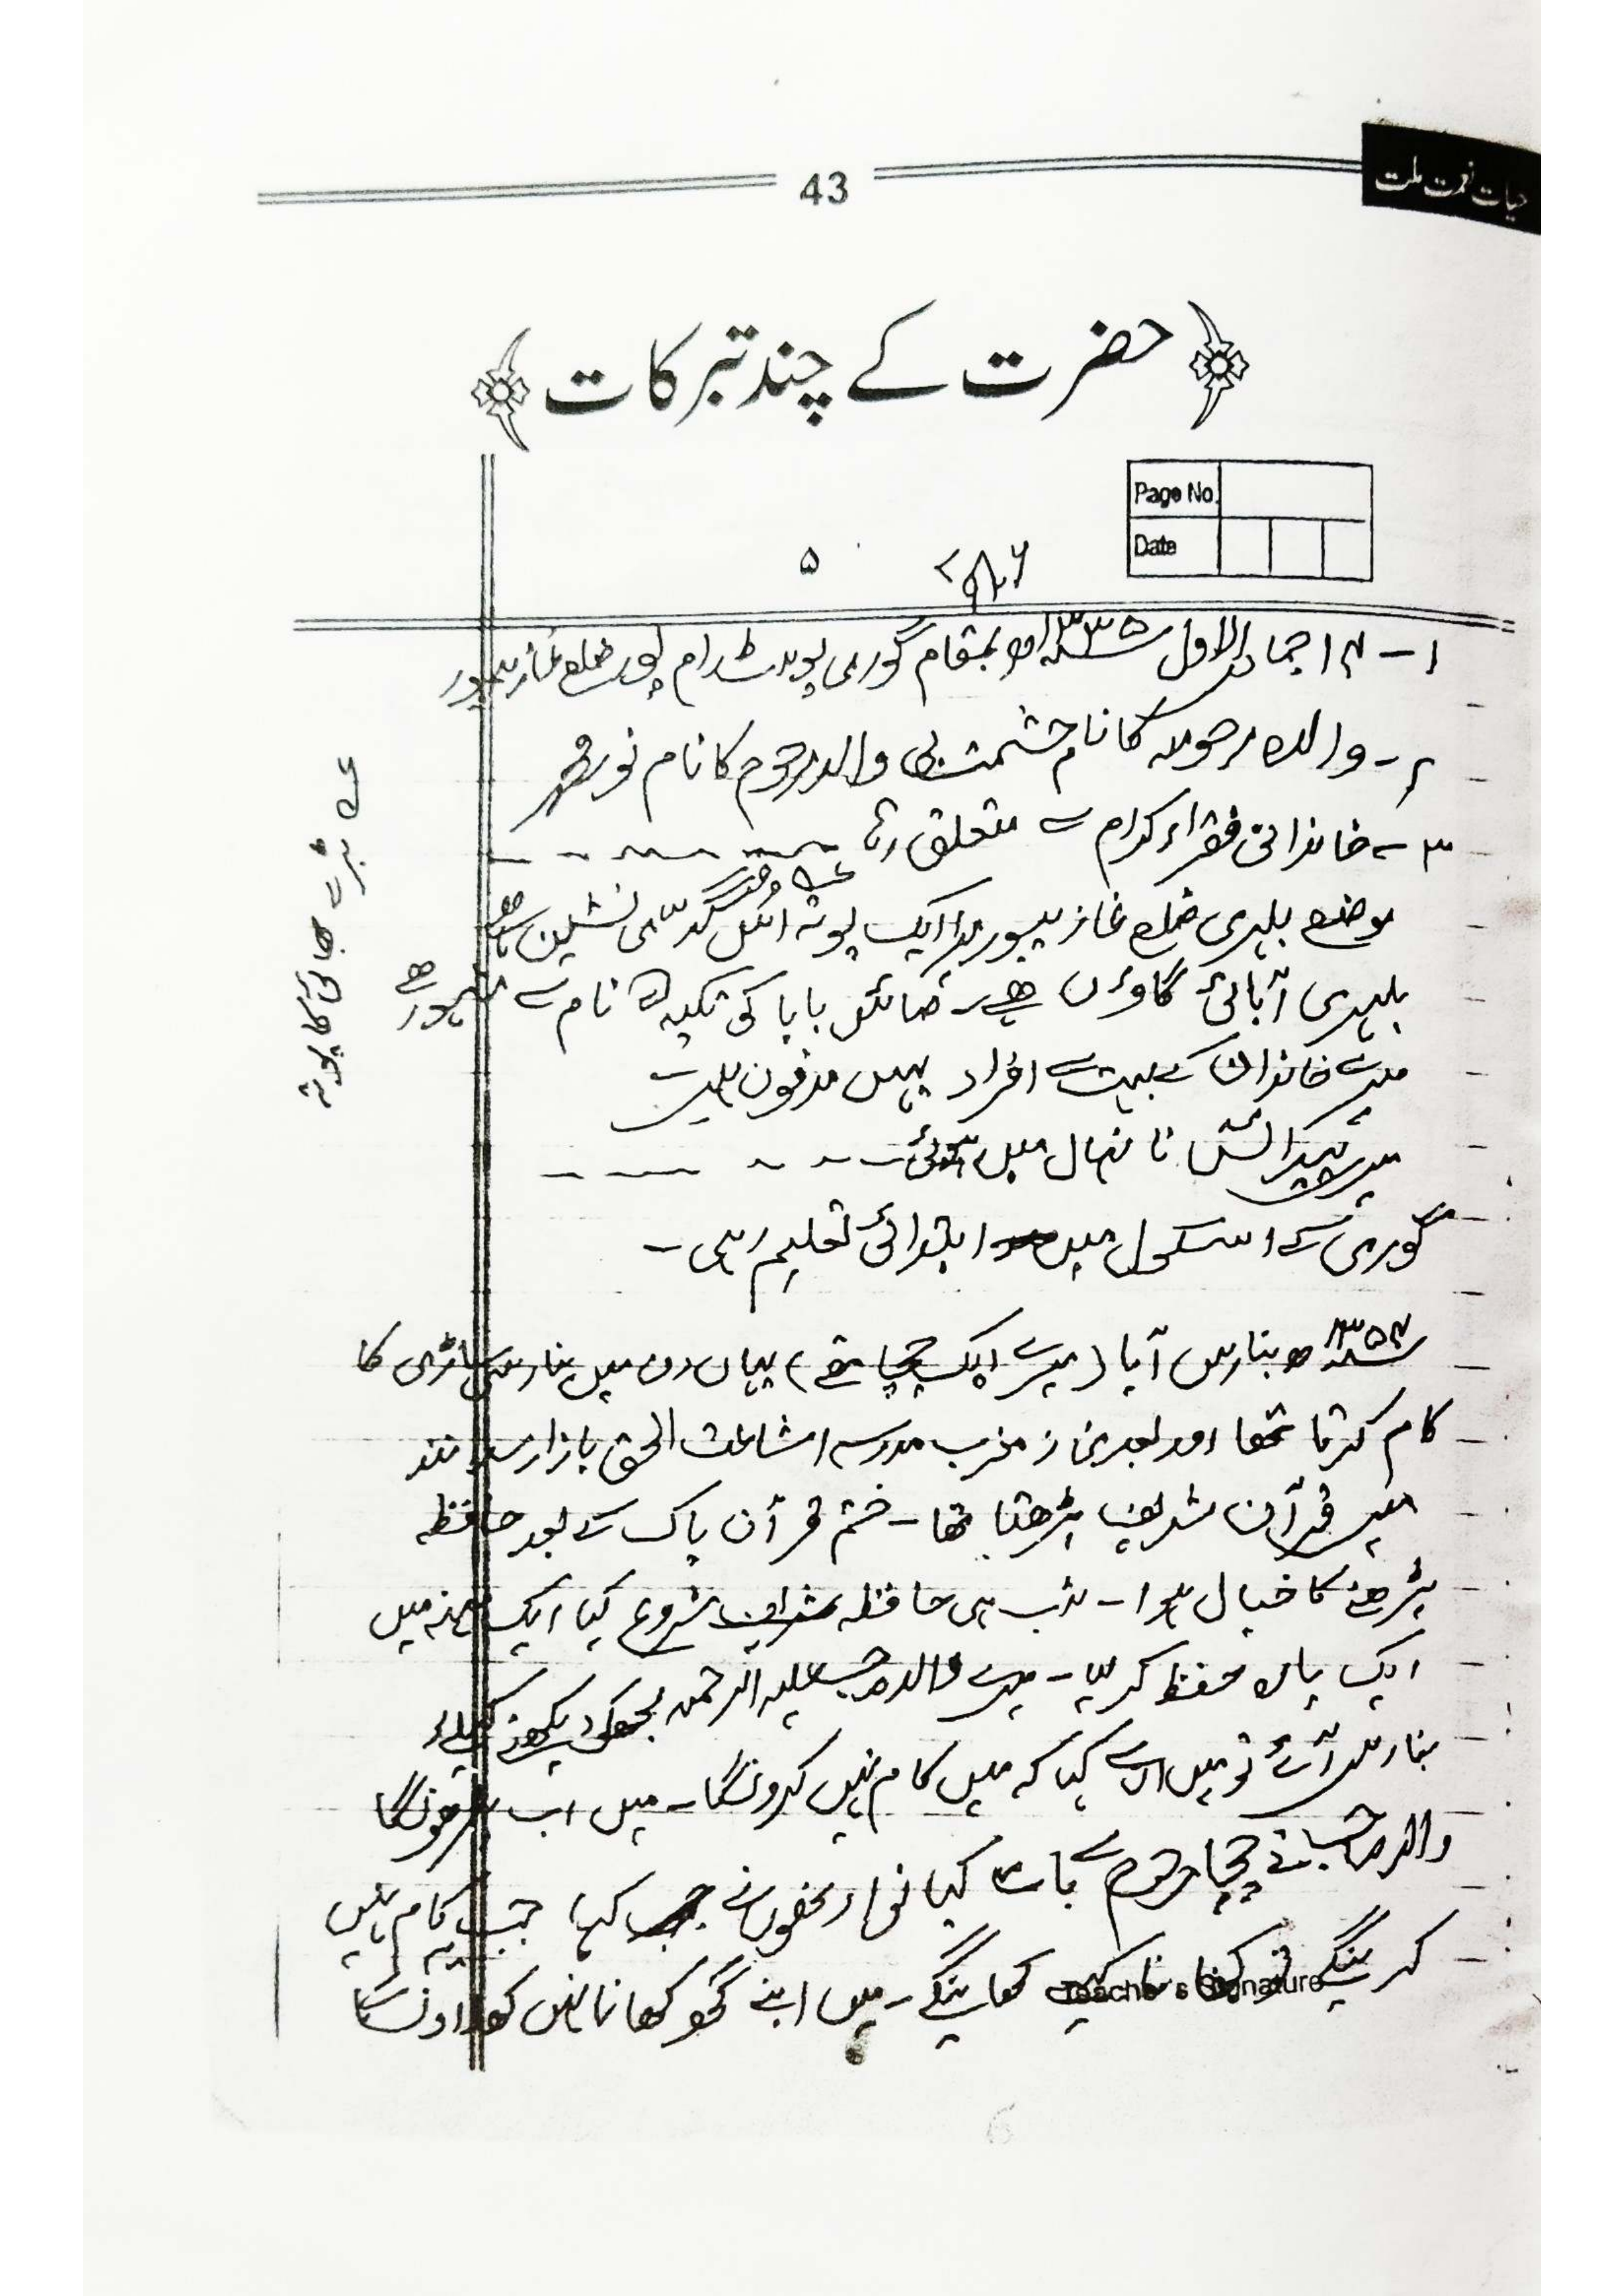 حیات نعمت ملت
43
حضرت کے چند تبرکات
Page No.
Date
۷۸۶
۵
۱۔ ۱۴ جماد الاول ۱۳۳۵ھ بمقام گوری پوسٹ رام پور ضلع غازیپور
۲۔ والدہ مرحومہ کا نام حشمت بی والد مرحوم کا نام نور محمد
۳۔ خاندانی فقراء کرام سے متعلق رہا
موضع بلہری ضلع غازیپور میرا ایک پوتہ گدی نشین ہے
بلہری آبائی گاؤں ہے۔ بابا کی تکیہ نام سے مشہور ہے
میرے خاندان کے بہت سے افراد یہیں مدفون ہیں
میری پیدائش نانہال میں ہوئی
گوری کے اسکول میں ابتدائی تعلیم رہی۔
۱۳۵۴ھ بنارس آیا (میرے ایک چچا تھے) یہاں دن میں بنارسی ساڑی کا
کام کرتا تھا اور بعد نماز مغرب مدرسہ اشاعت الحق بازار
میں قرآن شریف پڑھتا تھا۔ ختم قرآن پاک کے بعد حافظہ
پڑھنے کا خیال ہوا۔ تب ہی حافظہ شروع کیا ایک مہینہ میں
ایک پارہ حفظ کر لیا۔ میرے والد صاحب علیہ الرحمہ مجھکو دیکھنے کیلئے
بنارس آئے تو میں ان سے کہا کہ میں کام نہیں کرونگا۔ میں اب پڑھونگا
والد صاحب نے چچا مرحوم سے بات کیا تو انھوں نے کہا جب یہ کام نہیں
کرینگے تو کھانا کیسے کھائینگے۔ میں اپنے گھر کھانا نہیں کھلاؤنگا
Teacher's Signature
عہ بڑے بھائی کا پوتہ